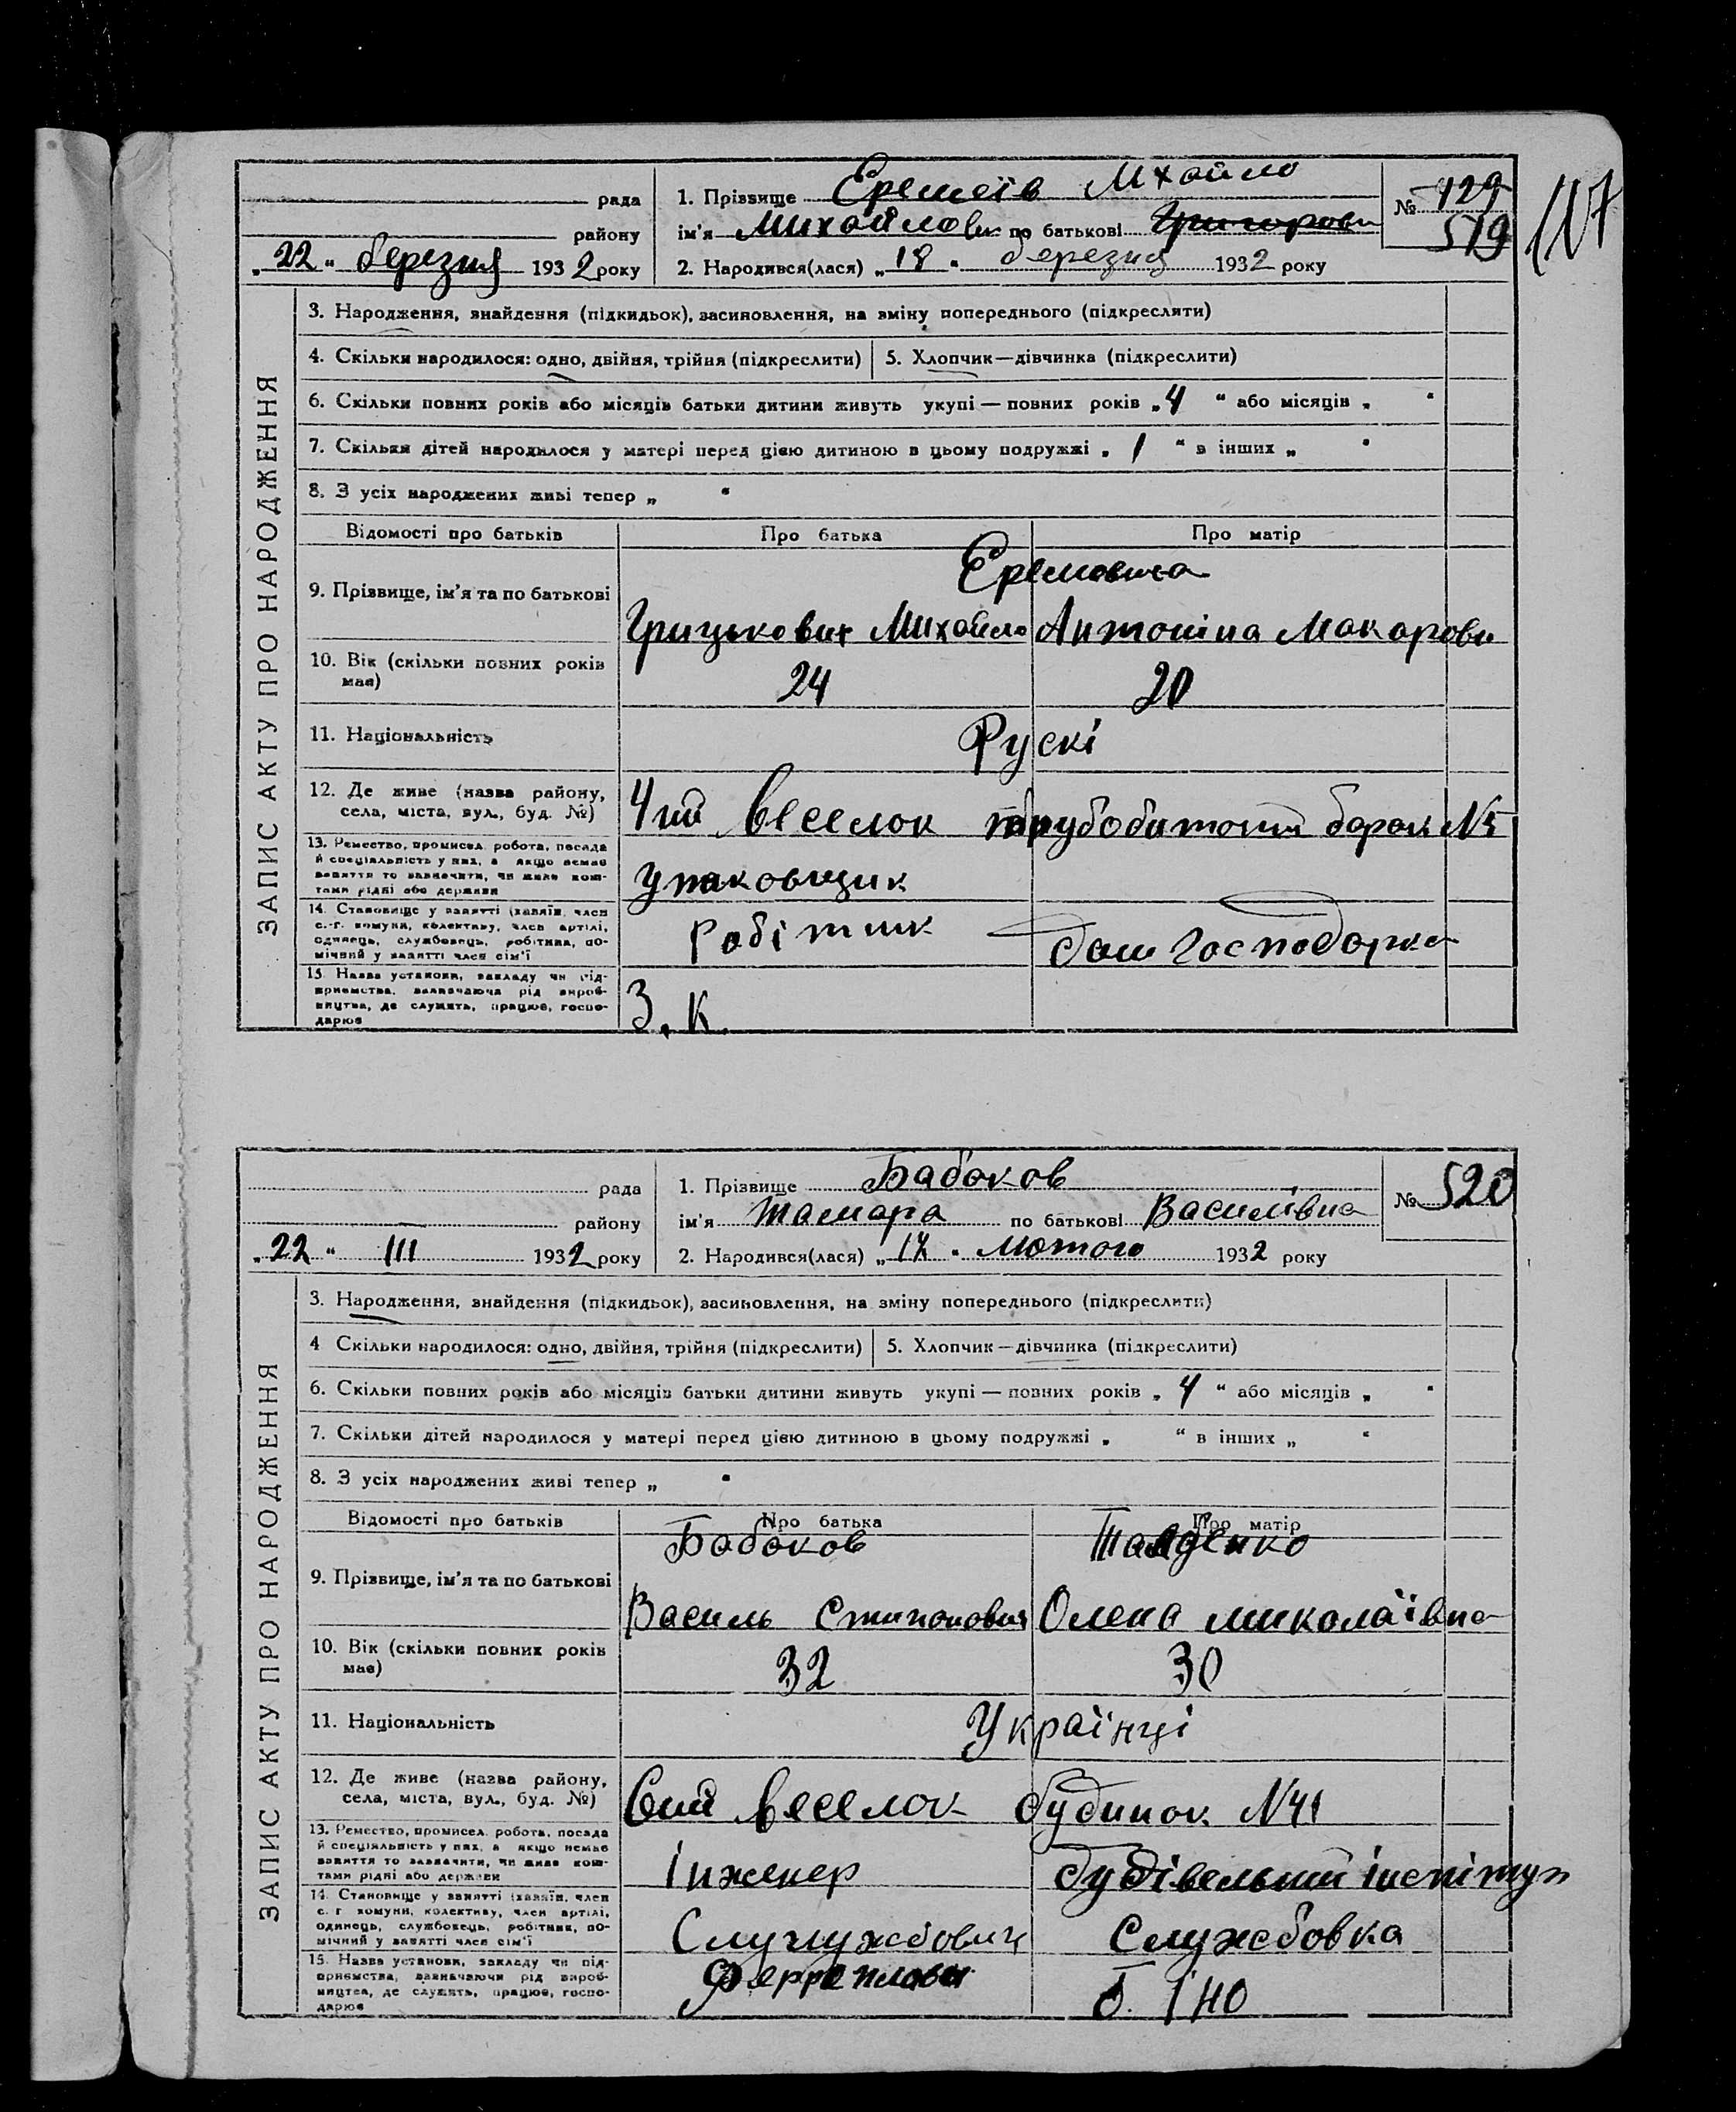 117
рада
району
„22“ березня 1932 року
1. Прізвище Еремеїв Михайло
ім'я Михайлович по батькові Григорович
2. Народився(лася) „18“ березня 1932 року
№ 129
519
ЗАПИС АКТУ ПРО НАРОДЖЕННЯ
3. Народження, знайдення (підкидьок), засиновлення, на зміну попереднього (підкреслити)
4. Скільки народилося: одно, двійня, трійня (підкреслити) 5. Хлопчик—дівчинка (підкреслити)
6. Скільки повних років або місяців батьки дитини живуть укупі — повних років „4“ або місяців „ “
7. Скільки дітей народилося у матері перед цією дитиною в цьому подружжі „1“ в інших „ “
8. З усіх народжених живі тепер „ “
Відомості про батьків Про батька Про матір
9. Прізвище, ім'я та по батькові
Грицькович Михайло Антоніна Макаровн
10. Вік (скільки повних років має) 24 20
11. Національність Рускі
12. Де живе (назва району, села, міста, вул., буд. №) 4ий веселок барак №5
13. Ремество, промисел, робота, посада й спеціяльність у них, а якщо немає заняття то зазначити, чи живе коштами рідні або держави упаковщик
14. Становище у занятті (хазяїн, член с.-г. комуни, колективу, член артілі, одинець, службовець, робітник, помічний у занятті член сім'ї робітник дом господарка
15. Назва установи, закладу чи підприємства, зазначаючи рід виробництва, де служить, працює, господарює З. К.
рада
району
„22“ III 1932 року
1. Прізвище Бабаков
ім'я Тамара по батькові Василівна
2. Народився(лася) „17“ Лютого 1932 року
№ 520
ЗАПИС АКТУ ПРО НАРОДЖЕННЯ
3. Народження, знайдення (підкидьок), засиновлення, на зміну попереднього (підкреслити)
4 Скільки народилося: одно, двійня, трійня (підкреслити) 5. Хлопчик—дівчинка (підкреслити)
6. Скільки повних років або місяців батьки дитини живуть укупі — повних років „4“ або місяців „ “
7. Скільки дітей народилося у матері перед цією дитиною в цьому подружжі „ “ в інших „ “
8. З усіх народжених живі тепер „ “
Відомості про батьків Про батька Про матір
Бабаков
9. Прізвище, ім'я та по батькові
Василь Степанович Олена Миколаївна
10. Вік (скільки повних років має) 32 30
11. Національність Українці
12. Де живе (назва району, села, міста, вул., буд. №) 6ий веселок будинок №41
13. Ремество, промисел, робота, посада й спеціяльність у них, а якщо немає заняття то зазначити, чи живе коштами рідні або держави Інженер будівельний інститут
14. Становище у занятті (хазяїн, член с. г комуни, колективу, член артілі, одинець, службовець, робітник, помічний у занятті член сім'ї Службовка
15. Назва установи, закладу чи підприємства, зазначаючи рід виробництва, де служить, працює, господарює